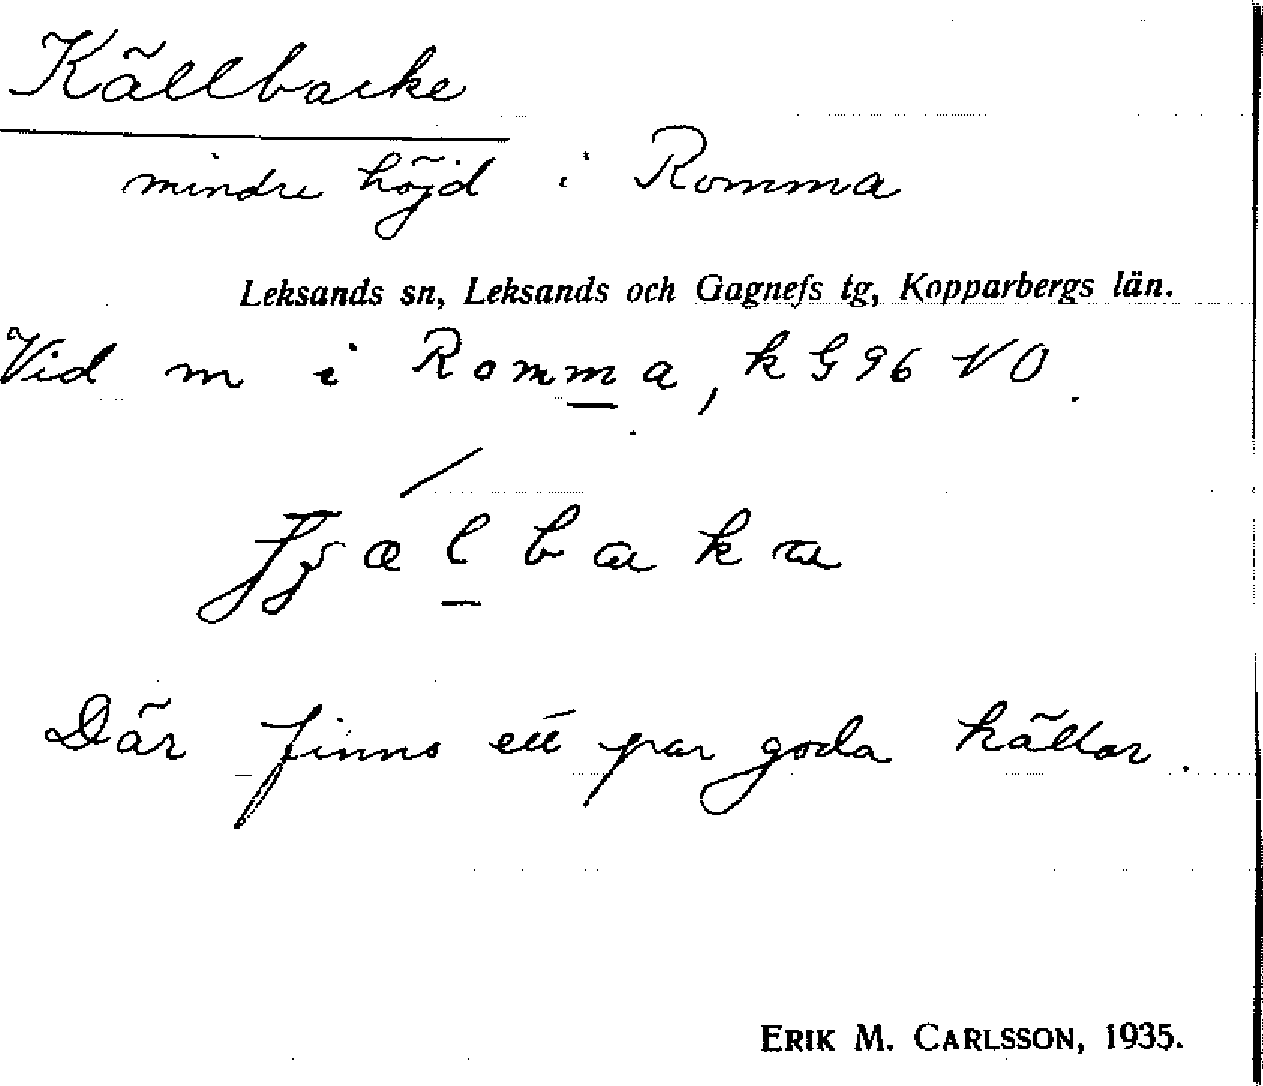 Källbacke
mindre höjd i Romma
Leksands sn, Leksands och Gagnefs tg, Kopparbergs län.
Vid m i Romma, k G 96 VO.
baka
Där finns ett par goda källor.
ERIK M. CARLSSON, 1935.